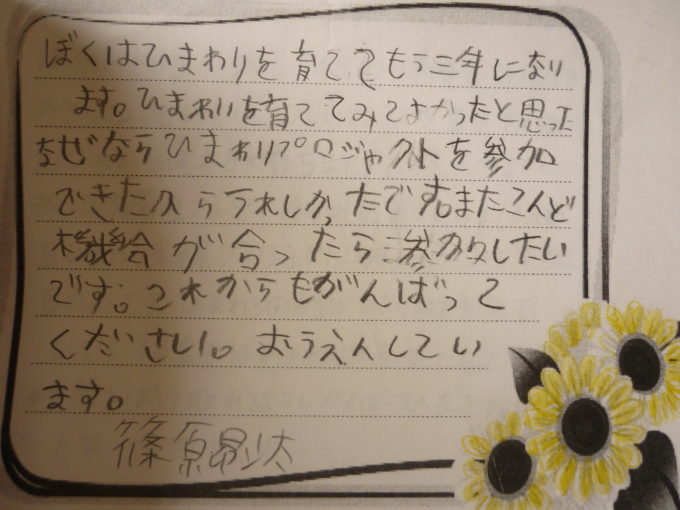 ぼくはひまわりを育ててもう三年になり
ます。ひまわりを育ててみてよかったと思った
なぜならひまわりプロジャクトを参加
できたからうれしかったです。またこんど
機絵が合ったら参加したい
です。これからもがんばって
ください。おうえんしてい
ます。
篠原